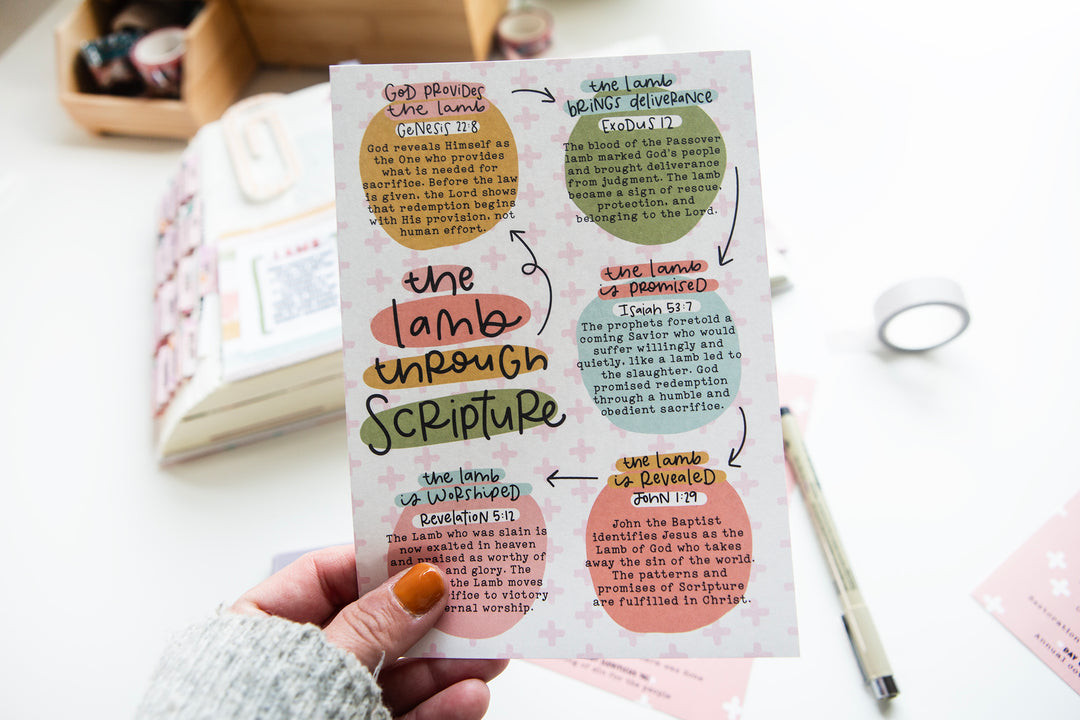 the
lamb
through
Scripture
God provides
the lamb
Genesis 22:8
God reveals Himself as
the One who provides
what is needed for
sacrifice. Before the law
is given, the Lord shows
that redemption begins
with His provision, not
human effort.
the lamb
brings deliverance
Exodus 12
The blood of the Passover
lamb marked God's people
and brought deliverance
from judgment. The lamb
became a sign of rescue,
protection, and
belonging to the Lord.
the lamb
is promised
Isaiah 53:7
The prophets foretold a
coming Savior who would
suffer willingly and
quietly, like a lamb led to
the slaughter. God
promised redemption
through a humble and
obedient sacrifice.
the lamb
is revealed
John 1:29
John the Baptist
identifies Jesus as the
Lamb of God who takes
away the sin of the world.
The patterns and
promises of Scripture
are fulfilled in Christ.
the lamb
is worshiped
Revelation 5:12
The Lamb who was slain is
now exalted in heaven
and praised as worthy of
and glory. The
the Lamb moves
to victory
worship.
LAMB
DAY